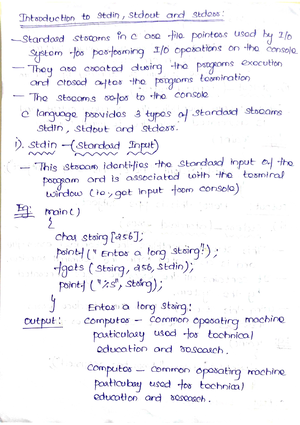 Introduction to stdin, stdout and stderr:
- Standard streams in c are file pointers used by I/o
system for performing I/o operations on the console
- They are created during the programs execution
and closed after the programs termination
- The streams refer to the console
c language provides 3 types of standard streams
stdin, stdout and stderr.
i). stdin - (Standard Input)
- This stream identifies the standard input of the
program and is associated with the terminal
window (ie, get input from console)
Eg: main()
{
char string[256];
printf("Enter a long string");
fgets(string, 256, stdin);
printf("%s", string);
}
Enter a long string:
output: computer - common operating machine
particulary used for technical
education and research.
computer - common operating machine
particulary used for technical
education and research.